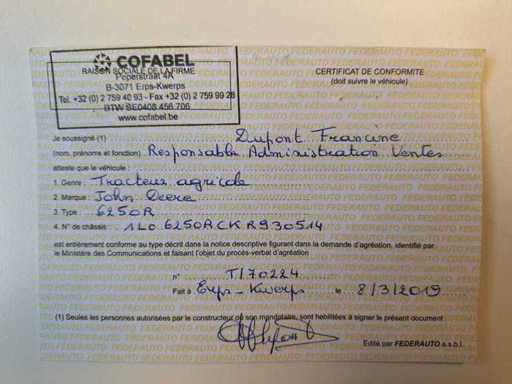 COFABEL
RAISON SOCIALE DE LA FIRME
Peperstraat 4A
B-3071 Erps-Kwerps
Tel. +32 (0) 2 759 40 93 - Fax +32 (0) 2 759 99 28
BTW BE0408.456.706
www.cofabel.be
CERTIFICAT DE CONFORMITE
(doit suivre le véhicule)
Je soussigné (1) Dupont Francine
(nom, prénoms et fonction) Responsable Administration Ventes
atteste que le véhicule :
1. Genre : Tracteur agricole
2. Marque : John Deere
3. Type : 6250R
4. N° de châssis : 1L06250RCKR930514
est entièrement conforme au type décrit dans la notice descriptive figurant dans la demande d'agréation, identifié par
le Ministère des Communications et faisant l'objet du procès-verbal d'agréation
n° T/70224
Fait à Erps-Kwerps le 8/3/2019
(1) Seules les personnes autorisées par le constructeur ou son mandataire, sont habilitées à signer le présent document
Edité par FEDERAUTO a.s.b.l.